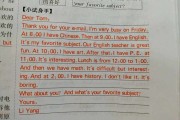 your favorite subject?
【小试身手】
Dear Tom,
Thank you for your e-mail. I'm very busy on Friday.
At 8.00 I have Chinese. Then at 9.00 I have English.
It's my favorite subject. Our English teacher is great
fun. At 10.00 I have art. After that, I have P.E. at
11.00. It's interesting. Lunch is from 12.00 to 1.00.
And then we have math. It's difficult but interest-
ing. And at 2.00, I have history. I don't like it. It's
boring.
What about you? And what's your favorite subject?
Yours,
Li Yang